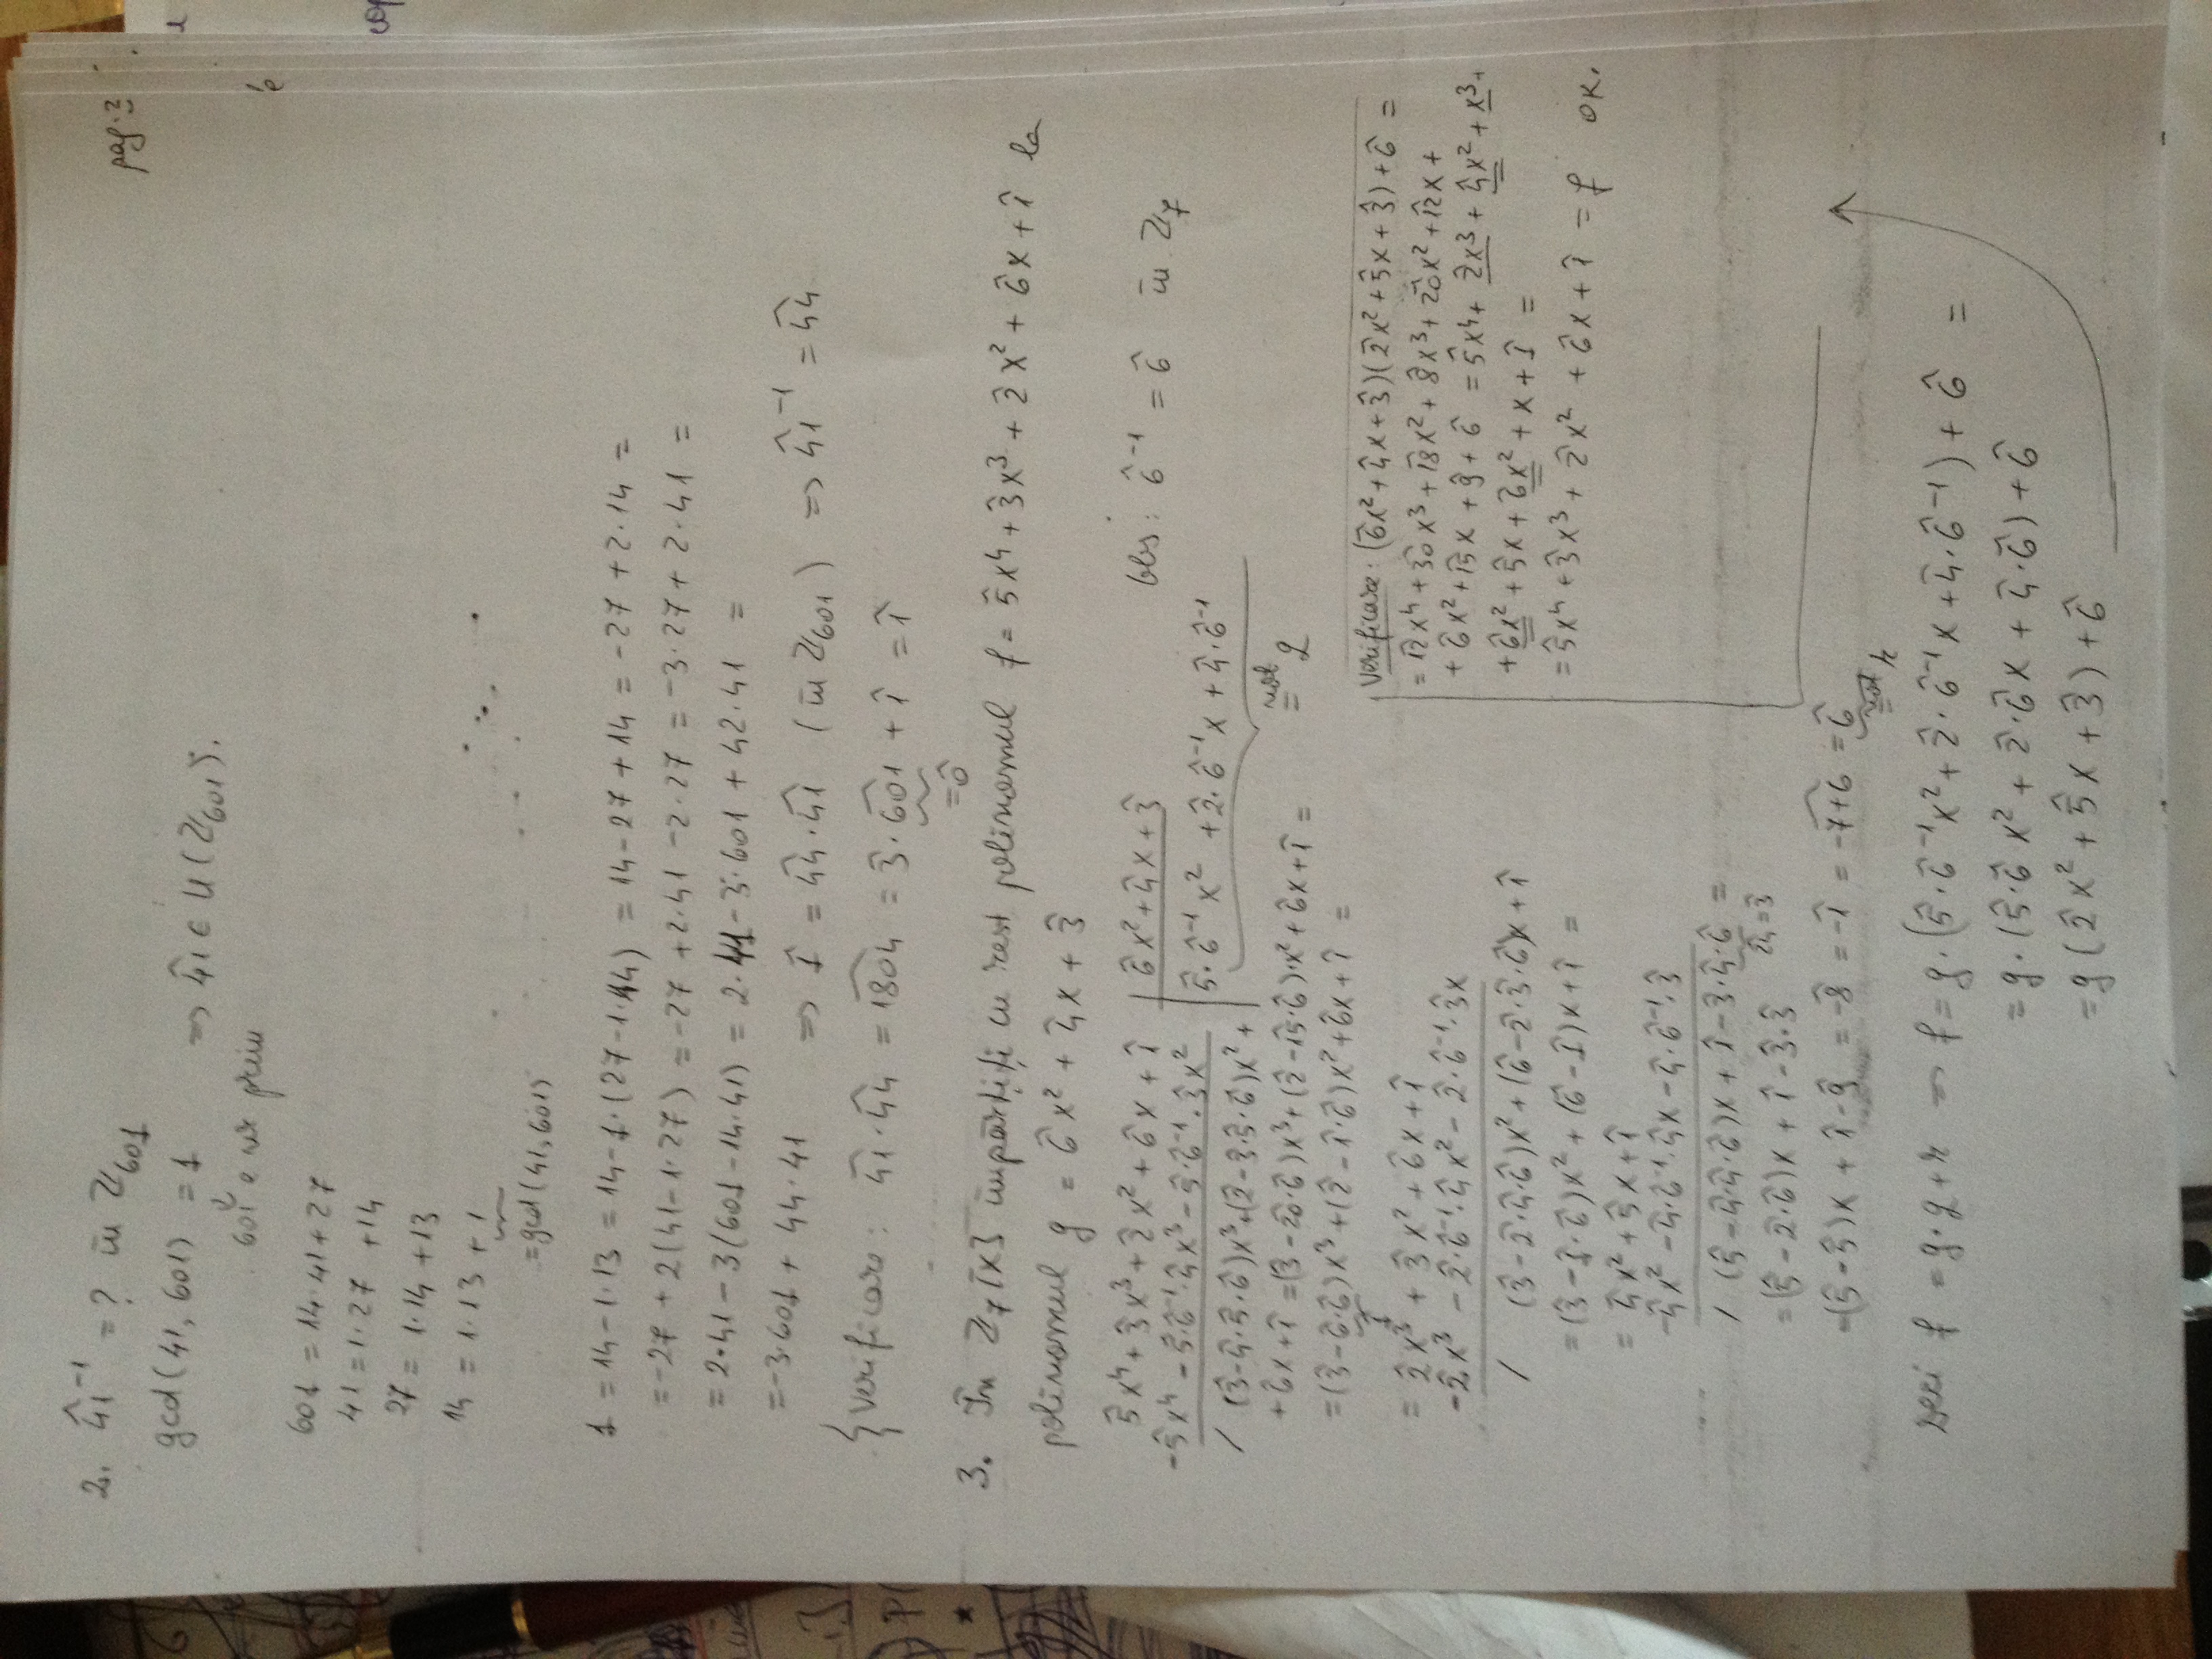 pag. 2
2. 4̂1̂⁻¹ = ? în ℤ₆₀₁
gcd(41, 601) = 1 ⇒ 4̂1̂ ∈ U(ℤ₆₀₁).
601 e nr prim
601 = 14·41 + 27
41 = 1·27 + 14
27 = 1·14 + 13
14 = 1·13 + 1
= gcd(41, 601)
1 = 14 - 1·13 = 14 - 1·(27 - 1·14) = 14 - 27 + 14 = -27 + 2·14 =
= -27 + 2(41 - 1·27) = -27 + 2·41 - 2·27 = -3·27 + 2·41 =
= 2·41 - 3(601 - 14·41) = 2·41 - 3·601 + 42·41 =
= -3·601 + 44·41 ⇒ 1̂ = 4̂4̂·4̂1̂ (în ℤ₆₀₁) ⇒ 4̂1̂⁻¹ = 4̂4̂
{ Verificare: 4̂1̂·4̂4̂ = 1̂8̂0̂4̂ = 3̂·6̂0̂1̂ + 1̂ = 1̂
= 0̂
3. În ℤ₇[X] împărțiți cu rest polinomul f = 5̂x⁴ + 3̂x³ + 2̂x² + 6̂x + 1̂ la
polinomul g = 6̂x² + 4̂x + 3̂
5̂x⁴ + 3̂x³ + 2̂x² + 6̂x + 1̂ | 6̂x² + 4̂x + 3̂ Obs: 6̂⁻¹ = 6̂ în ℤ₇
-5̂x⁴ - 5̂·6̂⁻¹·4̂x³ - 5̂·6̂⁻¹·3̂x² | 5̂·6̂⁻¹x² + 2̂·6̂⁻¹x + 4̂·6̂⁻¹
/ (3̂-4̂·5̂·6̂)x³ + (2̂-3̂·5̂·6̂)x² +
+ 6̂x + 1̂ = (3̂ - 2̂0̂·6̂)x³ + (2̂ - 1̂5̂·6̂)·x² + 6̂x + 1̂ = not = q
= (3̂ - 6̂·6̂)x³ + (2̂ - 1̂·6̂)x² + 6̂x + 1̂ =
1̂
= 2̂x³ + 3̂x² + 6̂x + 1̂
-2̂x³ - 2̂·6̂⁻¹·4̂x² - 2̂·6̂⁻¹·3̂x
/ (3̂ - 2̂·4̂·6̂)x² + (6̂ - 2̂·3̂·6̂)x + 1̂
= (3̂ - 1̂·6̂)x² + (6̂ - 1̂)x + 1̂ =
= 4̂x² + 5̂x + 1̂
-4̂x² - 4̂·6̂⁻¹·4̂x - 4̂·6̂⁻¹·3̂
/ (5̂ - 4̂·4̂·6̂)x + 1̂ - 3̂·4̂·6̂ =
2̂4̂ = 3̂
= (5̂ - 2̂·6̂)x + 1̂ - 3̂·3̂
= (5̂ - 5̂)x + 1̂ - 9̂ = -8̂ = -1̂ = -7+6 = 6̂
not = r
Verificare: (6̂x² + 4̂x + 3̂)(2̂x² + 5̂x + 3̂) + 6̂ =
= 1̂2̂x⁴ + 3̂0̂x³ + 1̂8̂x² + 8̂x³ + 2̂0̂x² + 1̂2̂x +
+ 6̂x² + 1̂5̂x + 9̂ + 6̂ = 5̂x⁴ + 2̂x³ + 4̂x² + x³ +
+ 6̂x² + 5̂x + 6̂x² + x + 1̂ =
= 5̂x⁴ + 3̂x³ + 2̂x² + 6̂x + 1̂ = f OK.
Deci f = g·q + r ⇒ f = g·(5̂·6̂⁻¹x² + 2̂·6̂⁻¹x + 4̂·6̂⁻¹) + 6̂ =
= g·(5̂·6̂x² + 2̂·6̂x + 4̂·6̂) + 6̂
= g(2̂x² + 5̂x + 3̂) + 6̂